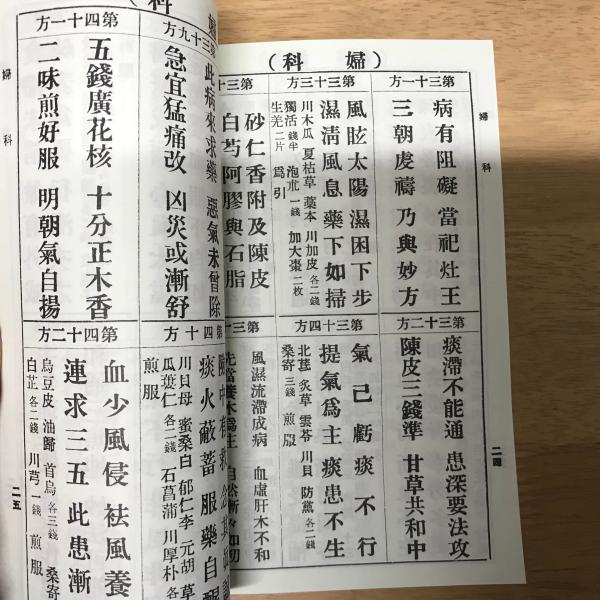 （婦科）
婦科
第三十一方
病有阻礙 當祀灶王
三朝虔禱 乃與妙方
第三十三方
風眩太陽 濕困下步
濕清風息 藥下如掃
川木瓜 夏枯草 藁本 川加皮各二錢
獨活錢半 泡朮一錢 加大棗二枚
生羌二片 爲引
第三十
砂仁香附及陳皮
白芍阿膠與石脂
第三十二方
痰滯不能通 患深要法攻
陳皮三錢準 甘草共和中
第三十四方
氣已虧 痰不行
提氣爲主 痰患不生
北芪 炙草 雲苓 川貝 防黨各二錢
桑寄三錢 煎服
第三十
風濕流滯成病 血虛肝木不和
先當養木爲主 自然漸々如初
二四
科
第三十九方
此病來求藥 惡氣未曾除
急宜猛痛改 凶災或漸舒
第四十一方
五錢廣花核 十分正木香
二味煎好服 明朝氣自揚
第四十方
痰火蔽蓄 服藥自醒
川貝母 蜜桑白 郁仁李 元胡 草
瓜蔞仁各二錢 石菖蒲 川厚朴各
煎服
第四十二方
血少風侵 祛風養
連求三五 此患漸
烏豆皮 油歸 首烏各三錢 桑寄
白芷各二錢 川芎一錢 煎服
婦科
二五